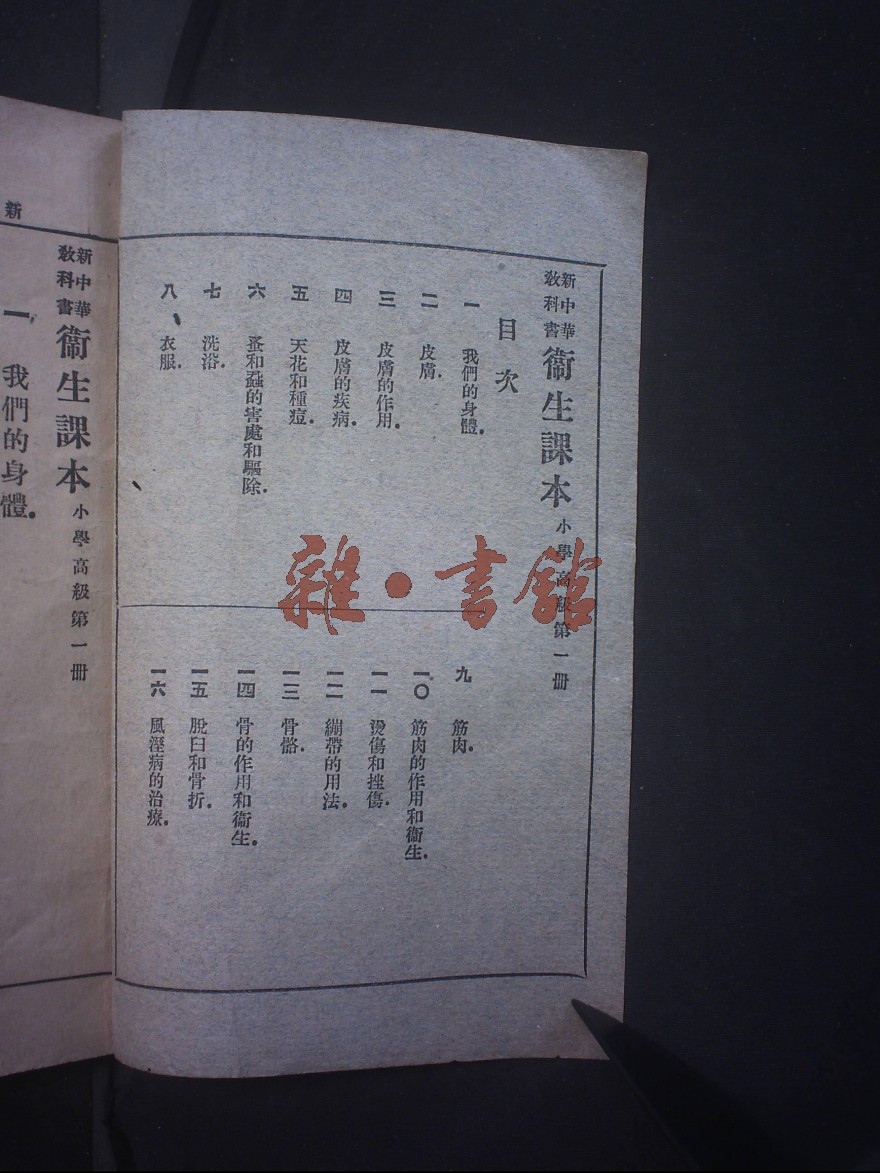 新中華
教科書
衞生課本
小學高級第一冊
目次
一 我們的身體.
二 皮膚.
三 皮膚的作用.
四 皮膚的疾病.
五 天花和種痘.
六 蚤和蝨的害處和驅除.
七 洗浴.
八 衣服.
九 筋肉.
一〇 筋肉的作用和衞生.
一一 燙傷和挫傷.
一二 繃帶的用法.
一三 骨骼.
一四 骨的作用和衞生.
一五 脫臼和骨折.
一六 風溼病的治療.
新中華
教科書
衞生課本
小學高級第一冊
一 我們的身體.
新
雜·書館